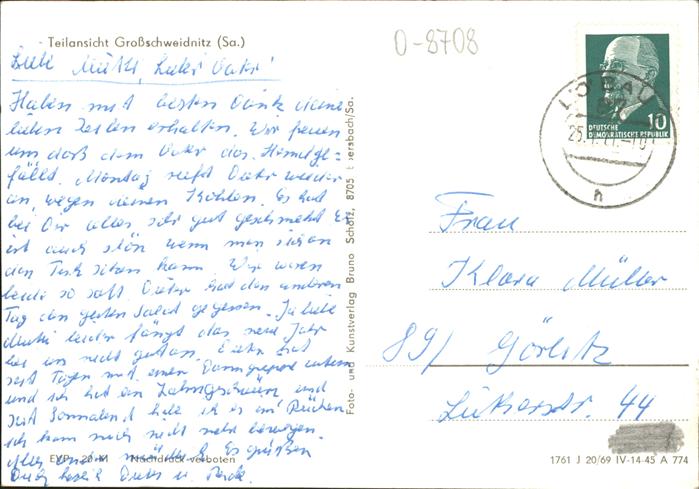 Teilansicht Großschweidnitz (Sa.)
O-8708
Liebe Mutti, lieber Vater!
Haben mit besten Dank deine
lieben Zeilen erhalten. Wir freuen
uns daß dem Vater das Hemd ge-
fällt. Montag ruft Dieter wieder
an, wegen deinen Kohlen. Es hat
bei Dir alles sehr gut geschmeckt
ist auch schön wenn man sich an
den Tisch setzen kann. Wir waren
beide so satt. Dieter hat den anderen
Tag den guten Salat gegessen. Ja liebe
Mutti leider fängt das neue Jahr
bei uns nicht gut an. Dieter hat
seit Tagen mit einer Darmgrippe
und ich hab ein Zahngeschwür und
seit Sonnabend habe ich es im Rücken
ich kann mich nicht mehr bewegen.
Alles Es grüßen
Dich herzl. Dieter u.
EVP -,20 M Nachdruck verboten
Foto- und Kunstverlag Bruno Scholz, 8705 Ebersbach/Sa.
LÖBAU
h
10
DEUTSCHE
DEMOKRATISCHE REPUBLIK
Frau
Klara Müller
89/ Görlitz
Lutherstr. 44
1761 J 20/69 IV-14-45 A 774